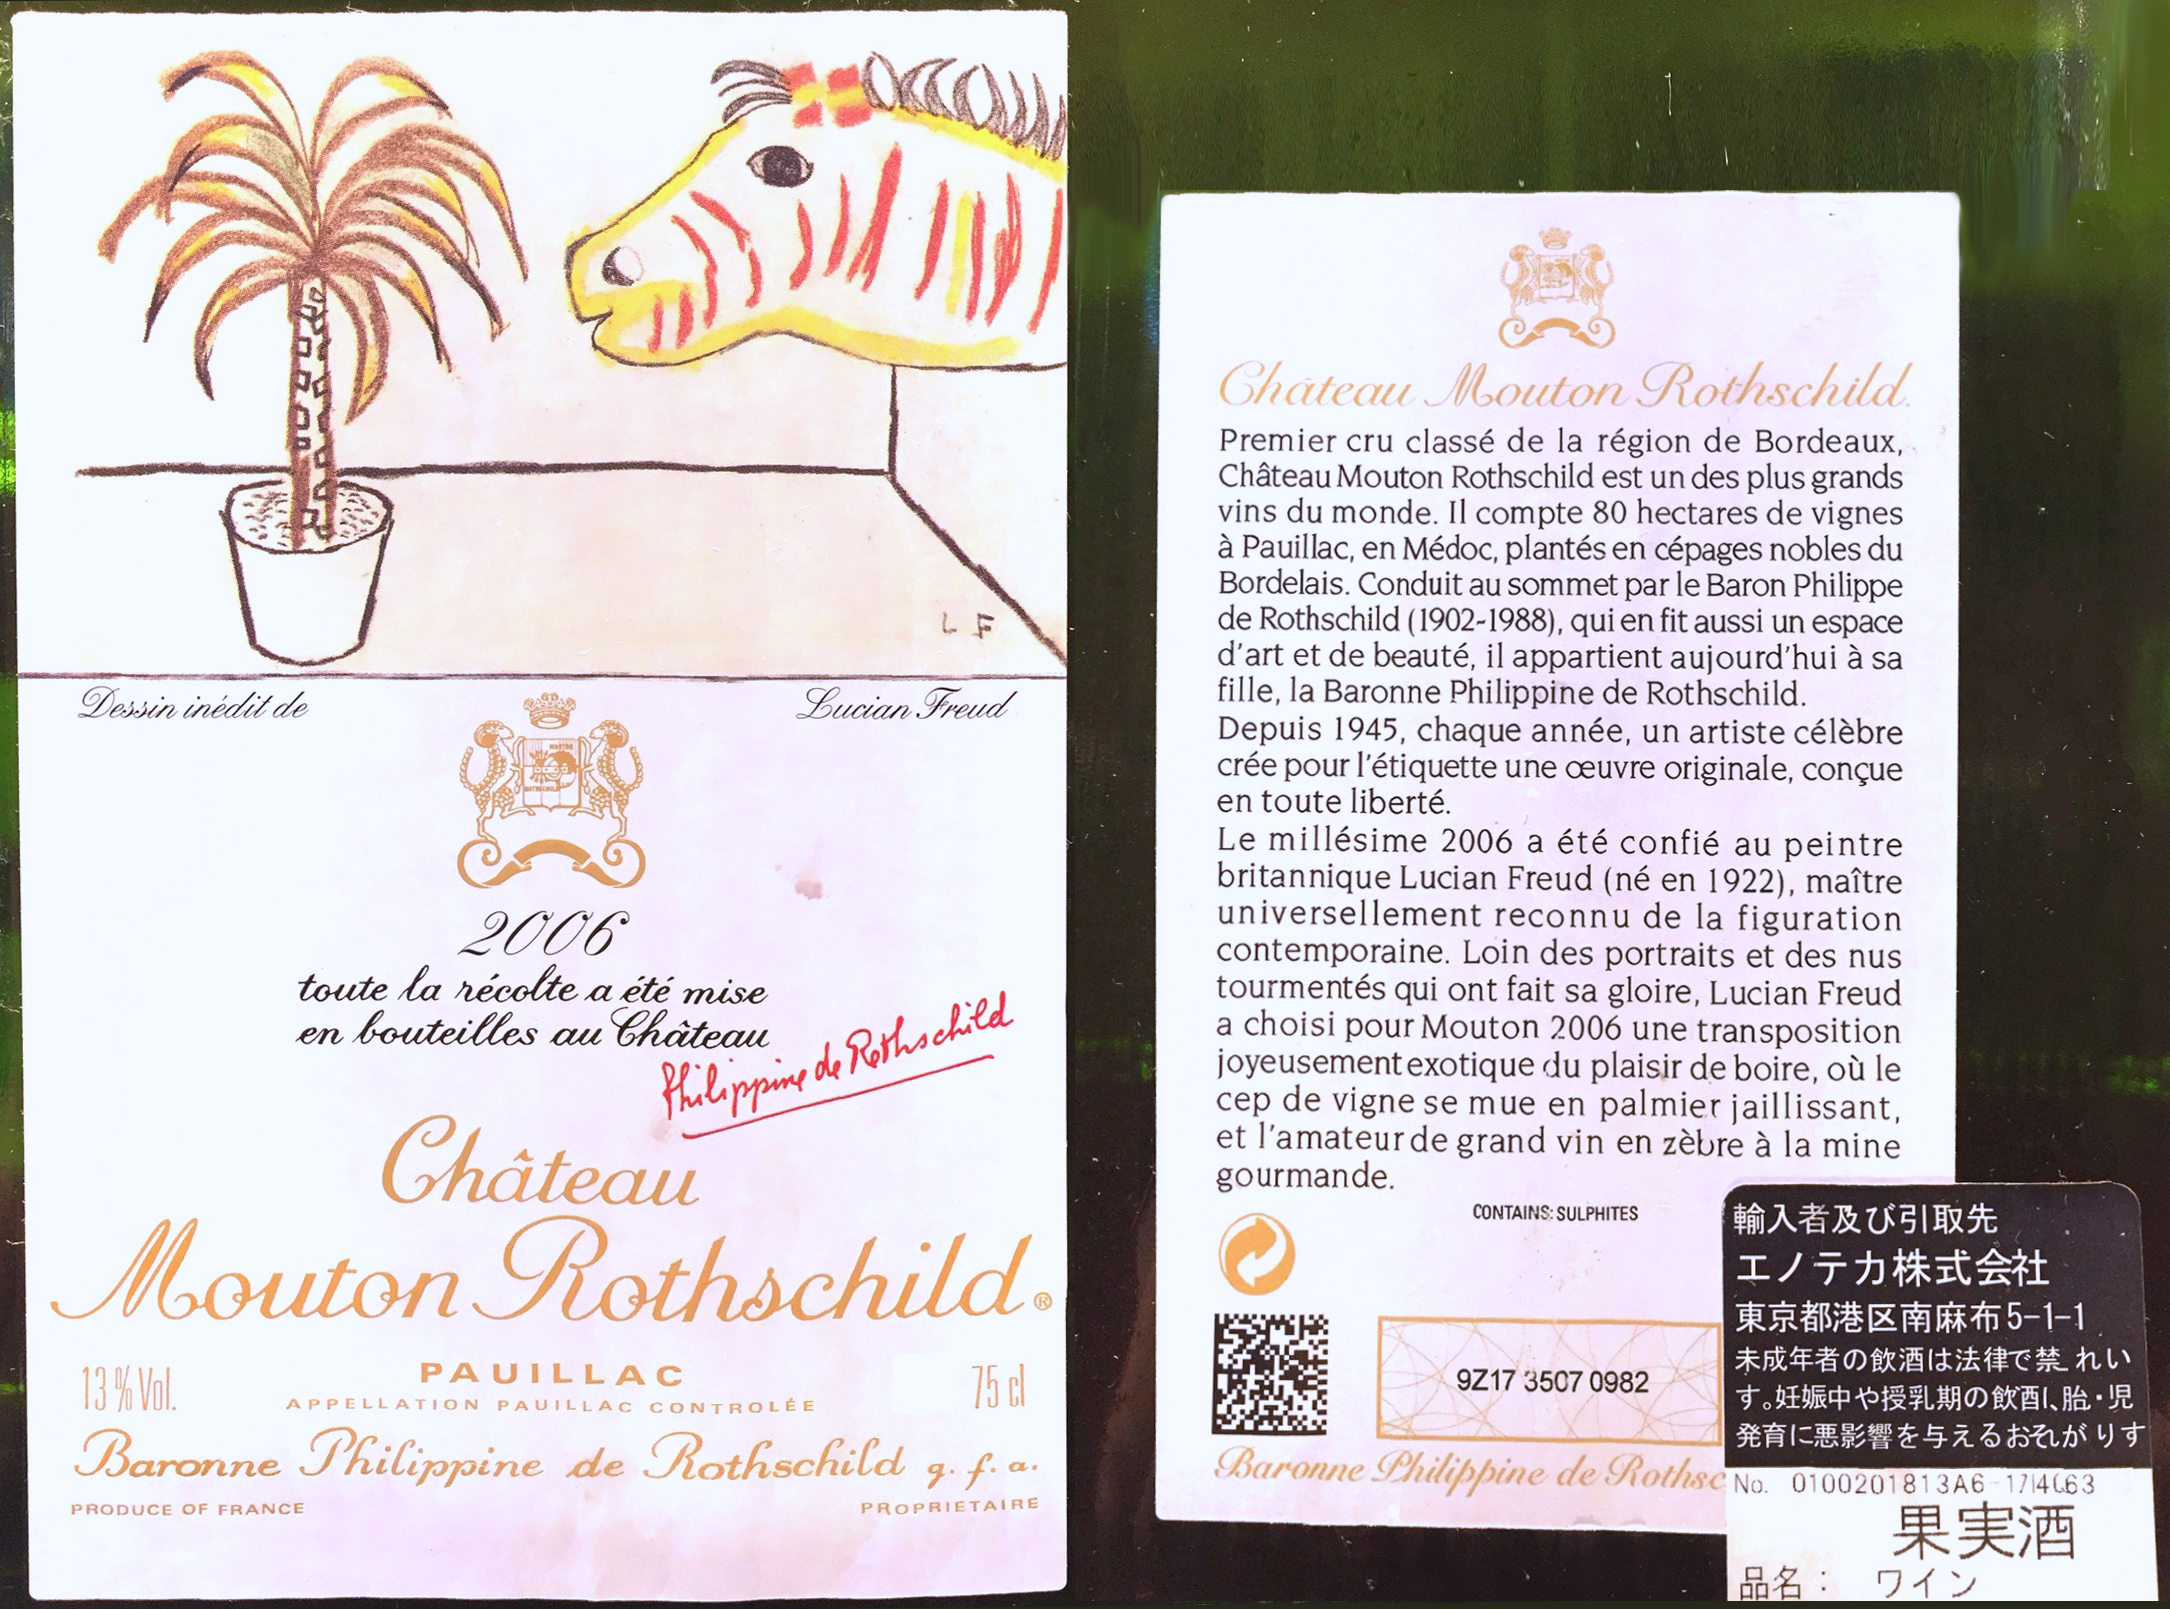 L F
Dessin inédit de
Lucian Freud
MOUTON
ROTHSCHILD
2006
toute la récolte a été mise
en bouteilles au Château
Philippine de Rothschild
Château
Mouton Rothschild®
13 % Vol.
PAUILLAC
75 cl
APPELLATION PAUILLAC CONTROLÉE
Baronne Philippine de Rothschild g. f. a.
PRODUCE OF FRANCE
PROPRIETAIRE
Château Mouton Rothschild.
Premier cru classé de la région de Bordeaux,
Château Mouton Rothschild est un des plus grands
vins du monde. Il compte 80 hectares de vignes
à Pauillac, en Médoc, plantés en cépages nobles du
Bordelais. Conduit au sommet par le Baron Philippe
de Rothschild (1902-1988), qui en fit aussi un espace
d'art et de beauté, il appartient aujourd'hui à sa
fille, la Baronne Philippine de Rothschild.
Depuis 1945, chaque année, un artiste célèbre
crée pour l'étiquette une œuvre originale, conçue
en toute liberté.
Le millésime 2006 a été confié au peintre
britannique Lucian Freud (né en 1922), maître
universellement reconnu de la figuration
contemporaine. Loin des portraits et des nus
tourmentés qui ont fait sa gloire, Lucian Freud
a choisi pour Mouton 2006 une transposition
joyeusement exotique du plaisir de boire, où le
cep de vigne se mue en palmier jaillissant,
et l'amateur de grand vin en zèbre à la mine
gourmande.
CONTAINS: SULPHITES
9Z17 3507 0982
Baronne Philippine de Rothsc
輸入者及び引取先
エノテカ株式会社
東京都港区南麻布5-1-1
未成年者の飲酒は法律で禁 れい
す。妊娠中や授乳期の飲酒、胎・児
発育に悪影響を与えるおそれがりす
No. 0100201813A6
果実酒
品名： ワイン